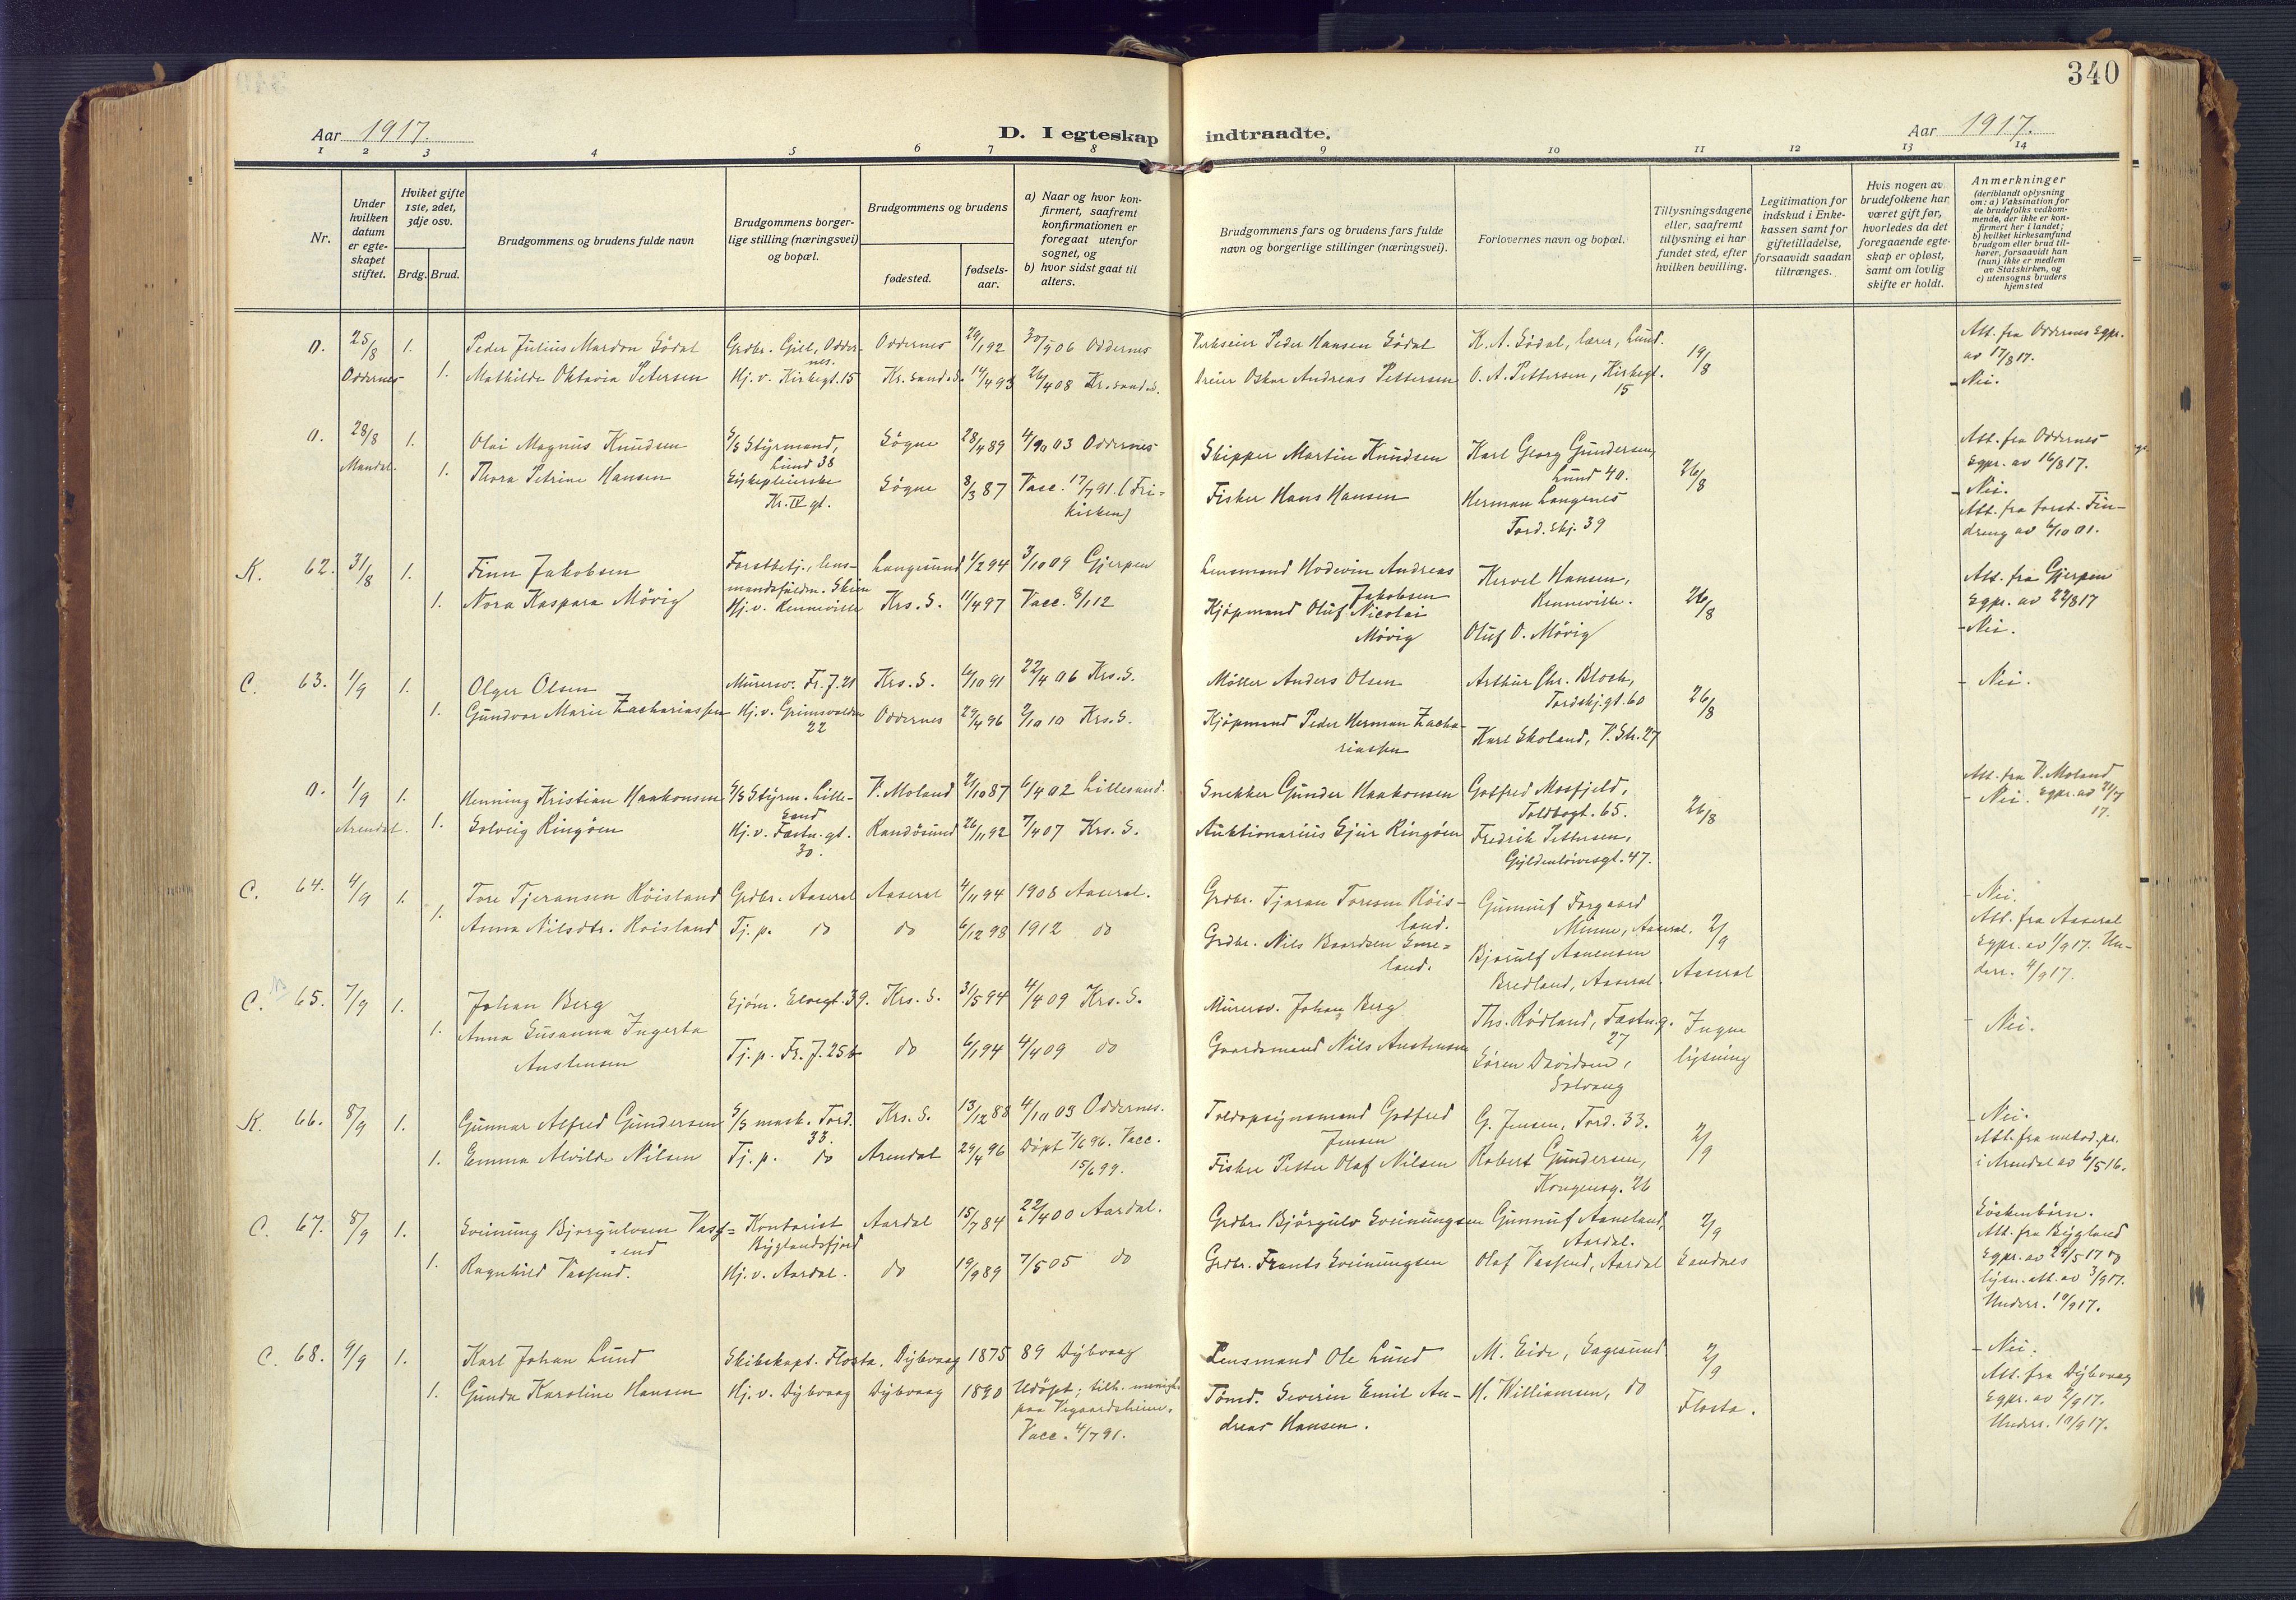 340
Aar 1917.
D. I egteskap indtraadte.
Aar 1917.
1 2 3 4 5 6 7 8 9 10 11 12 13 14
Nr.
Under hvilken datum er egteskapet stiftet.
Hvilket gifte 1ste, 2det, 3dje osv.
Brdg. Brud.
Brudgommens og brudens fulde navn
Brudgommens borgerlige stilling (næringsvei) og bopæl.
Brudgommens og brudens
fødested.
fødselsaar.
a) Naar og hvor konfirmert, saafremt konfirmationen er foregaat utenfor sognet, og
b) hvor sidst gaat til alters.
Brudgommens fars og brudens fars fulde navn og borgerlige stillinger (næringsvei).
Forlovernes navn og bopæl.
Tillysningsdagene eller, saafremt tillysning ei har fundet sted, efter hvilken bevilling.
Legitimation for indskud i Enkekassen samt for giftetilladelse, forsaavidt saadan tiltrænges.
Hvis nogen av brudefolkene har været gift før, hvorledes da det foregaaende egteskap er opløst, samt om lovlig skifte er holdt.
Anmerkninger (deriblandt oplysning om: a) Vaksination for de brudefolks vedkommende, der ikke er konfirmert her i landet; b) hvilket kirkesamfund brudgom eller brud tilhører, forsaavidt han (hun) ikke er medlem av Statskirken, og c) utensogns bruders hjemsted
0. 25/8 1. Peder Julius Mardon Södal Grdbr. Gill, Odder- Oddernes 29/1 92 30/9 06 Oddernes Peder Hansen Södal K. A. Södal, lærer, Lund. 19/8 Att. fra Oddernes Egpr.
nes. av 17/8 17.
Oddernes 1. Mathilde Oktavia Petersen Hj. v. Kirkegt. 15 Kr. sand. S. 14/4 93 26/4 08 Kr. sand. S. Oskar Andreas Pettersen O. A. Pettersen, Kirkegt. - Nei.
15
0. 28/8 1. Olai Magnus Knudsen S/S Styrmand, Søgne 28/4 89 4/10 03 Oddernes Skipper Martin Knudsen Karl Georg Gundersen, 26/8 Att. fra Oddernes
Lund 38 Lund 40. Egpr. av 16/8 17.
Mandal. 1. Thora Petrine Hansen Sykepleierske Søgne 8/3 87 Vacc. 17/7 91. (Fri- Fisker Hans Hansen Herman Langenes - Nei.
Kr. IV gt. kirken) Tord. skj. 39 Att. fra forst. Fin-
dreng av 6/10 01.
K. 62. 31/8 1. Finn Jakobsen Forstbetj., lens- Langesund 1/2 94 3/10 09 Gjerpen Lensmand Hodevin Andreas Kervel Hansen, 26/8 Att. fra Gjerpen
mandsfuldm. Skien Jakobsen Kenneville. Egpr. av 22/8 17
1. Nora Kaspara Mövig Hj. v. Kenneville Krs. S. 11/4 97 Vacc. 8/1 12 Kjøpmand Oluf Nicolai Oluf O. Mövig - Nei.
Mövig
C. 63. 1/9 1. Olger Olsen Murersv. Fr. J. 21 Krs. S. 6/10 91 22/4 06 Krs. S. Møller Anders Olsen Arthur Chr. Bloch, 26/8 - Nei.
Tordskj. gt. 60
1. Gundvor Marie Zachariassen Hj. v. Grimsvolden Oddernes 29/4 96 2/10 10 Krs. S. Kjøpmand Peder Herman Zacha- Karl Skoland, V. Str. 27
22 riassen
0. 1/9 1. Henning Kristian Haakonsen S/S Styrm. Lille- V. Moland 21/10 87 6/4 02 Lillesand. Snekker Gunder Haakonsen Gotfred Mosfjeld, 26/8 Att. fra V. Moland
sand Toldbogt. 65. - Nei. Egpr. av 21/7
Arendal. 1. Solveig Ringøen Hj. v. Fæstn. gt. Randøsund 26/11 92 7/4 07 Krs. S. Auktionarius Sjur Ringøen Fredrik Pettersen, 17.
30. Gyldenløvesgt. 47.
C. 64. 4/9 1. Tore Tjeransen Röisland Grdbr. Aaseral Aaseral 4/11 94 1908 Aaseral. Grdbr. Tjeran Toresen Röis- Gunnuf Forgaard 2/9 - Nei.
land. Minne, Aaseral. Att. fra Aaseral
1. Anna Nilsdtr. Roisland Tj. p. do do 6/12 98 1912 do Grdbr. Nils Baardsen Smee- Bjørulf Aanensen Egpr. av 1/9 17. Un-
land. Bredland, Aaseral. Aaseral derr. 4/9 17.
C. 65. 7/9 1. Johan Berg Sjøm. Elvegt. 39. Krs. S. 31/5 94 4/4 09 Krs. S. Murersv. Johan Berg Ths. Rødland, Fæstn. g. Ingen - Nei.
1. Anna Susanna Ingerta 27 lysning
Austensen Tj. p. Fr. J. 25b do 6/1 94 4/4 09 do Gaardsmand Nils Austensen Søren Davidsen,
Solvang
K. 66. 8/9 1. Gunnar Alfred Gundersen S/S mask. Tord. Krs. S. 13/12 88 4/10 03 Oddernes. Toldopsynsmand Gotfred G. Jensen, Tord. 33. 2/9 - Nei.
33. Jensen Att. fra metod. pr.
1. Emma Alvilde Nilsen Tj. p. do Arendal 29/4 96 Døpt 7/6 96. Vacc. Fisker Petter Olaf Nilsen Robert Gundersen, i Arendal av 6/5 16.
15/6 99. Kongensg. 26
C. 67. 8/9 1. Sveinung Bjorgulvsen Vass- Kontorist Aardal 15/7 84 22/4 00 Aardal. Grdbr. Björgulv Sveinungsen Gunnuf Aaneland, 2/9 Söskenbörn.
end Byglandsfjord Aardal. Att. fra Bygland
1. Ragnhild Vassend. Hj. v. Aardal. do 19/9 89 7/5 05 do Grdbr. Frants Sveinungsen Olaf Vassend, Aardal Sandnes Egpr. av 29/5 17 og
lysn. att. av 3/9 17.
Underr. 10/9 17.
C. 68. 9/9 1. Karl Johan Lund Skibskapt. Flosta. Dybvaag 1875 89 Dybvaag Lensmand Ole Lund M. Eide, Sagesund 2/9 - Nei.
Att. fra Dybvaag
1. Gunda Karoline Hansen Hj. v. Dybvaag Dybvaag 1890 Udöpt; tilh. menigh. Tømd. Severin Emil An- H. Williamsen, do Flosta. Egpr. av 2/9 17.
paa Vegaardsheien. dreas Hansen. Underr. 10/9 17.
Vacc. 4/7 91.